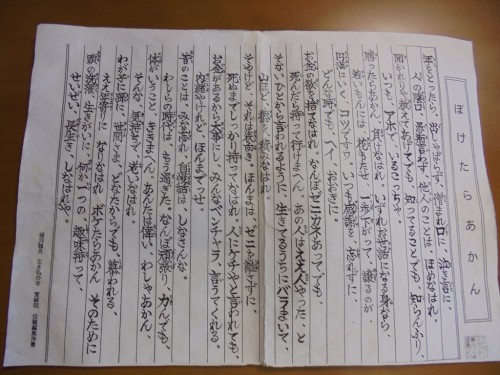 ぼけたらあかん
年をとったら出しゃばらず、憎まれ口に、泣き言に
人の蔭口、悪口言わず、他人のことは、ほめなはれ
聞かれりゃ教えてあげても、知ってることでも、知らんふり
いつも、アホで、いるこっちゃ。
勝ったらあかん、負けなはれ、いずれお世話になる身なら、
若いもんには、花もたせ、一歩さがって、譲るのが
円満にいく、コツですわ、いつも感謝を、忘れずに、
どんな時でも、ヘイ、おおきに
お金の欲を捨てなはれ、なんぼゼニカネあっても、
死んだら持って行けまへん、あの人は、ええ人やった、と
そないひとから、言われるように、生きてるうちに、バラまいて、
山ほど、徳を、積みなはれ
そやけど、それは表向き、ほんまは、ゼニを離さずに、
死ぬまでしっかり持ってなはれ、人にケチやと言われても、
お金があるから大事にし、みんなベンチャラ、言うてくれる。
内緒やけれど、ほんまでっせ。
昔のことは、みな忘れ、自慢話は、しなさんな。
わしらの時代は、もう過ぎた、なんぼ頑張り、力んでも、
体がいうこと、ききまへん、あんたは偉い、わしゃあかん、
そんな、気持ちで、老いなはれ。
わが子に孫に、世間さま、どなたからでも、慕われる、
ええ年寄りに、なりなはれ、ボケたらあかん、そのために
頭の洗濯、生きがいに、何か一つの、趣味持って、
せいぜい、長生き、しなはれや。